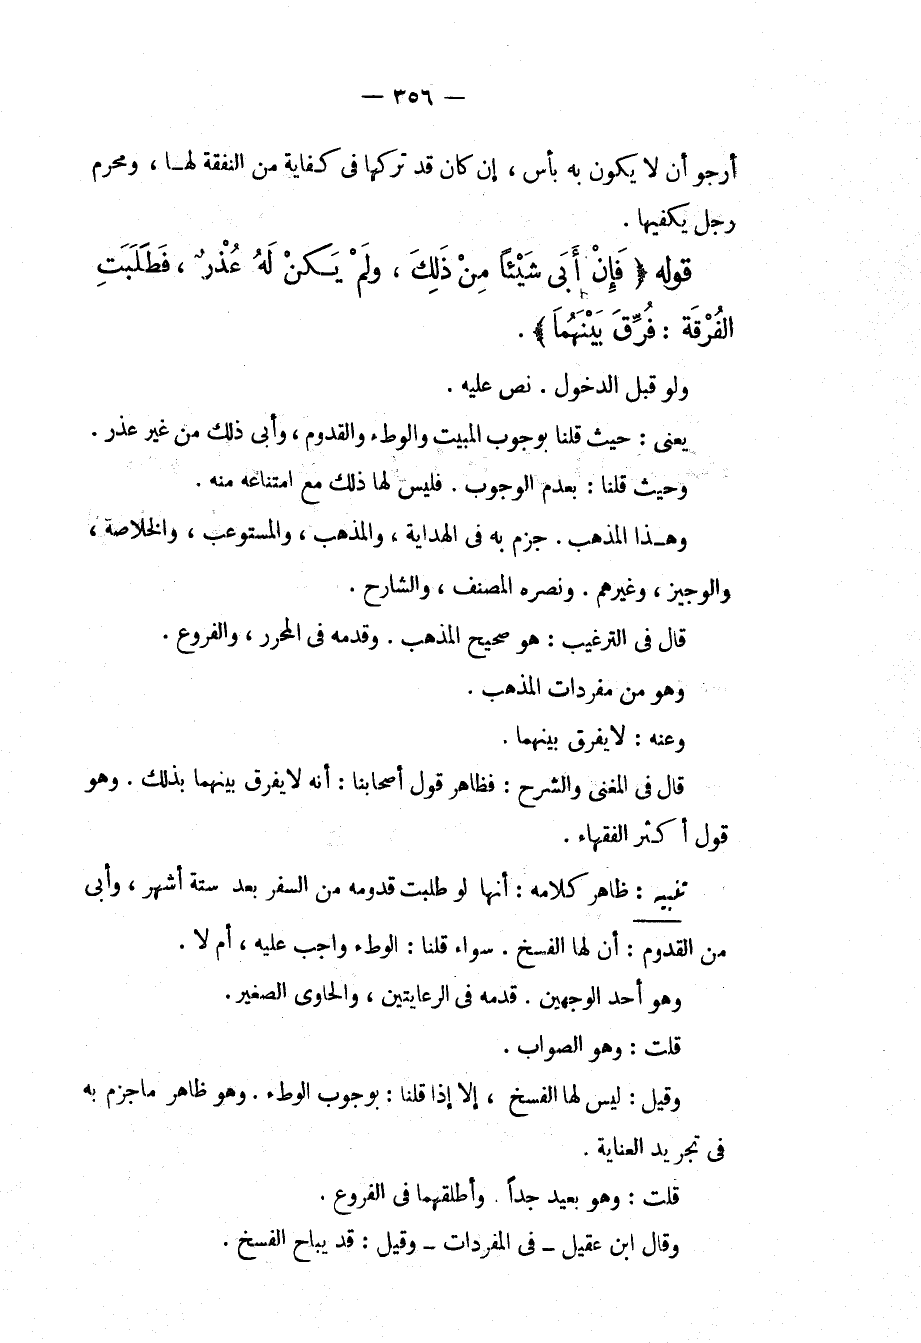 — ٣٥٦ —
أرجو أن لا يكون به بأس ، إن كان قد تركها فى كفاية من النفقة لهـا ، ومحرم
رجل يكفيها .
قوله ﴿ فَإِنْ أَبَى شَيْئاً مِنْ ذَلِكَ ، ولَمْ يَكنْ لَهُ عُذْرٌ ، فَطَلَبَتِ
الفُرْقَةَ : فُرِّقَ بَيْنَهُمَا ﴾ .
ولو قبل الدخول . نص عليه .
يعنى : حيث قلنا بوجوب المبيت والوطء والقدوم ، وأبى ذلك من غير عذر .
وحيث قلنا : بعدم الوجوب . فليس لها ذلك مع امتناعه منه .
وهـذا المذهب . جزم به فى الهداية ، والمذهب ، والمستوعب ، والخلاصة ،
والوجيز ، وغيرهم . ونصره المصنف ، والشارح .
قال فى الترغيب : هو صحيح المذهب . وقدمه فى المحرر ، والفروع .
وهو من مفردات المذهب .
وعنه : لايفرق بينهما .
قال فى المغنى والشرح : فظاهر قول أصحابنا : أنه لايفرق بينهما بذلك . وهو
قول أكثر الفقهاء .
تنبيه : ظاهر كلامه : أنها لو طلبت قدومه من السفر بعد ستة أشهر ، وأبى
من القدوم : أن لها الفسخ . سواء قلنا : الوطء واجب عليه ، أم لا .
وهو أحد الوجهين . قدمه فى الرعايتين ، والحاوى الصغير .
قلت : وهو الصواب .
وقيل : ليس لها الفسخ ، إلا إذا قلنا : بوجوب الوطء . وهو ظاهر ماجزم به
فى تجريد العناية .
قلت : وهو بعيد جداً . وأطلقهما فى الفروع .
وقال ابن عقيل – فى المفردات – وقيل : قد يباح الفسخ .